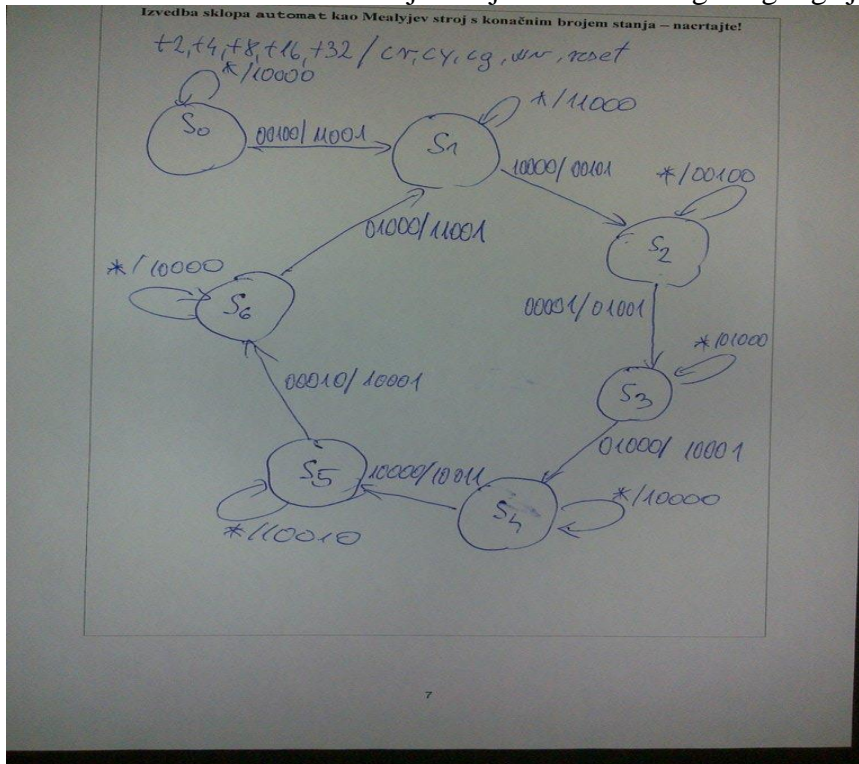 Izvedba sklopa automat kao Mealyjev stroj s konačnim brojem stanja – nacrtajte!
t2, t4, t8, t16, t32 / cr, cy, cg, wr, reset
*/10000
S0
00100/11001
*/11000
S1
10000/00101
*/00100
S2
01000/11001
*/10000
S6
00001/01001
*/01000
S3
00010/10001
01000/10001
S5
10000/10011
*/10000
S4
*/10010
7